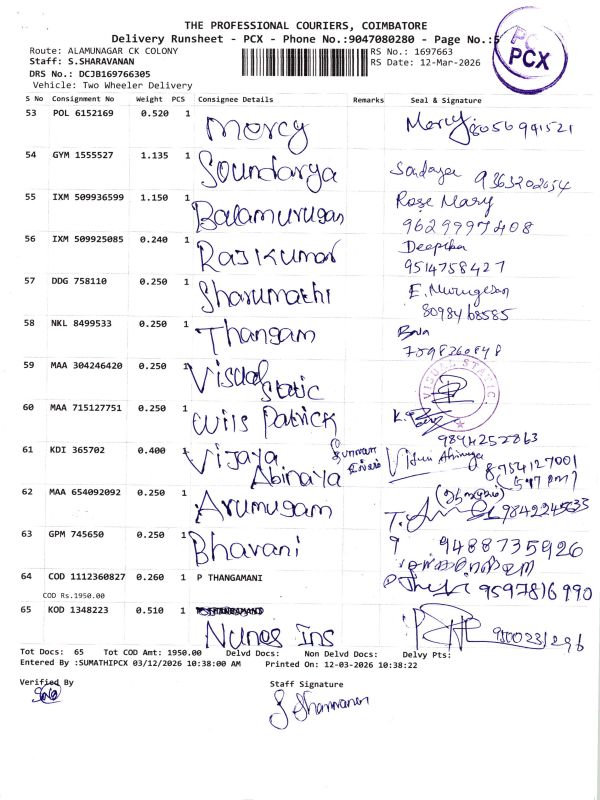 THE PROFESSIONAL COURIERS, COIMBATORE
Delivery Runsheet - PCX - Phone No.:9047080280 - Page No.:5
PCX
Route: ALAMUNAGAR CK COLONY
RS No.: 1697663
Staff: S.SHARAVANAN
RS Date: 12-Mar-2026
DRS No.: DCJB169766305
Vehicle: Two Wheeler Delivery
S No Consignment No Weight PCS Consignee Details Remarks Seal & Signature
53 POL 6152169 0.520 1 Mercy Mercy 8056991521
54 GYM 1555527 1.135 1 Soundarya 9363202654
55 IXM 509936599 1.150 1 Balamurugan Rose Mary
9629997408
56 IXM 509925085 0.240 1 Rajkumar Deepika
9514758427
57 DDG 758110 0.250 1 Sharumathi E. Murugesan
8098468585
58 NKL 8499533 0.250 1 Thangam Bala
7598360848
59 MAA 304246420 0.250 1 Visual Static
VISUAL STATIC
60 MAA 715127751 0.250 1 Wils Patrick K.
9894252863
61 KDI 365702 0.400 1 Vijaya Abinaya
8754127001
62 MAA 654092092 0.250 1 Arumugam 9842245633
63 GPM 745650 0.250 1 Bhavani 9488735926
64 COD 1112360827 0.260 1 P THANGAMANI 9597816990
COD Rs.1950.00
65 KOD 1348223 0.510 1 Nunes Ins
Tot Docs: 65 Tot COD Amt: 1950.00 Delvd Docs: Non Delvd Docs: Delvy Pts:
Entered By :SUMATHIPCX 03/12/2026 10:38:00 AM Printed On: 12-03-2026 10:38:22
Verified By Staff Signature
S Sharavanan